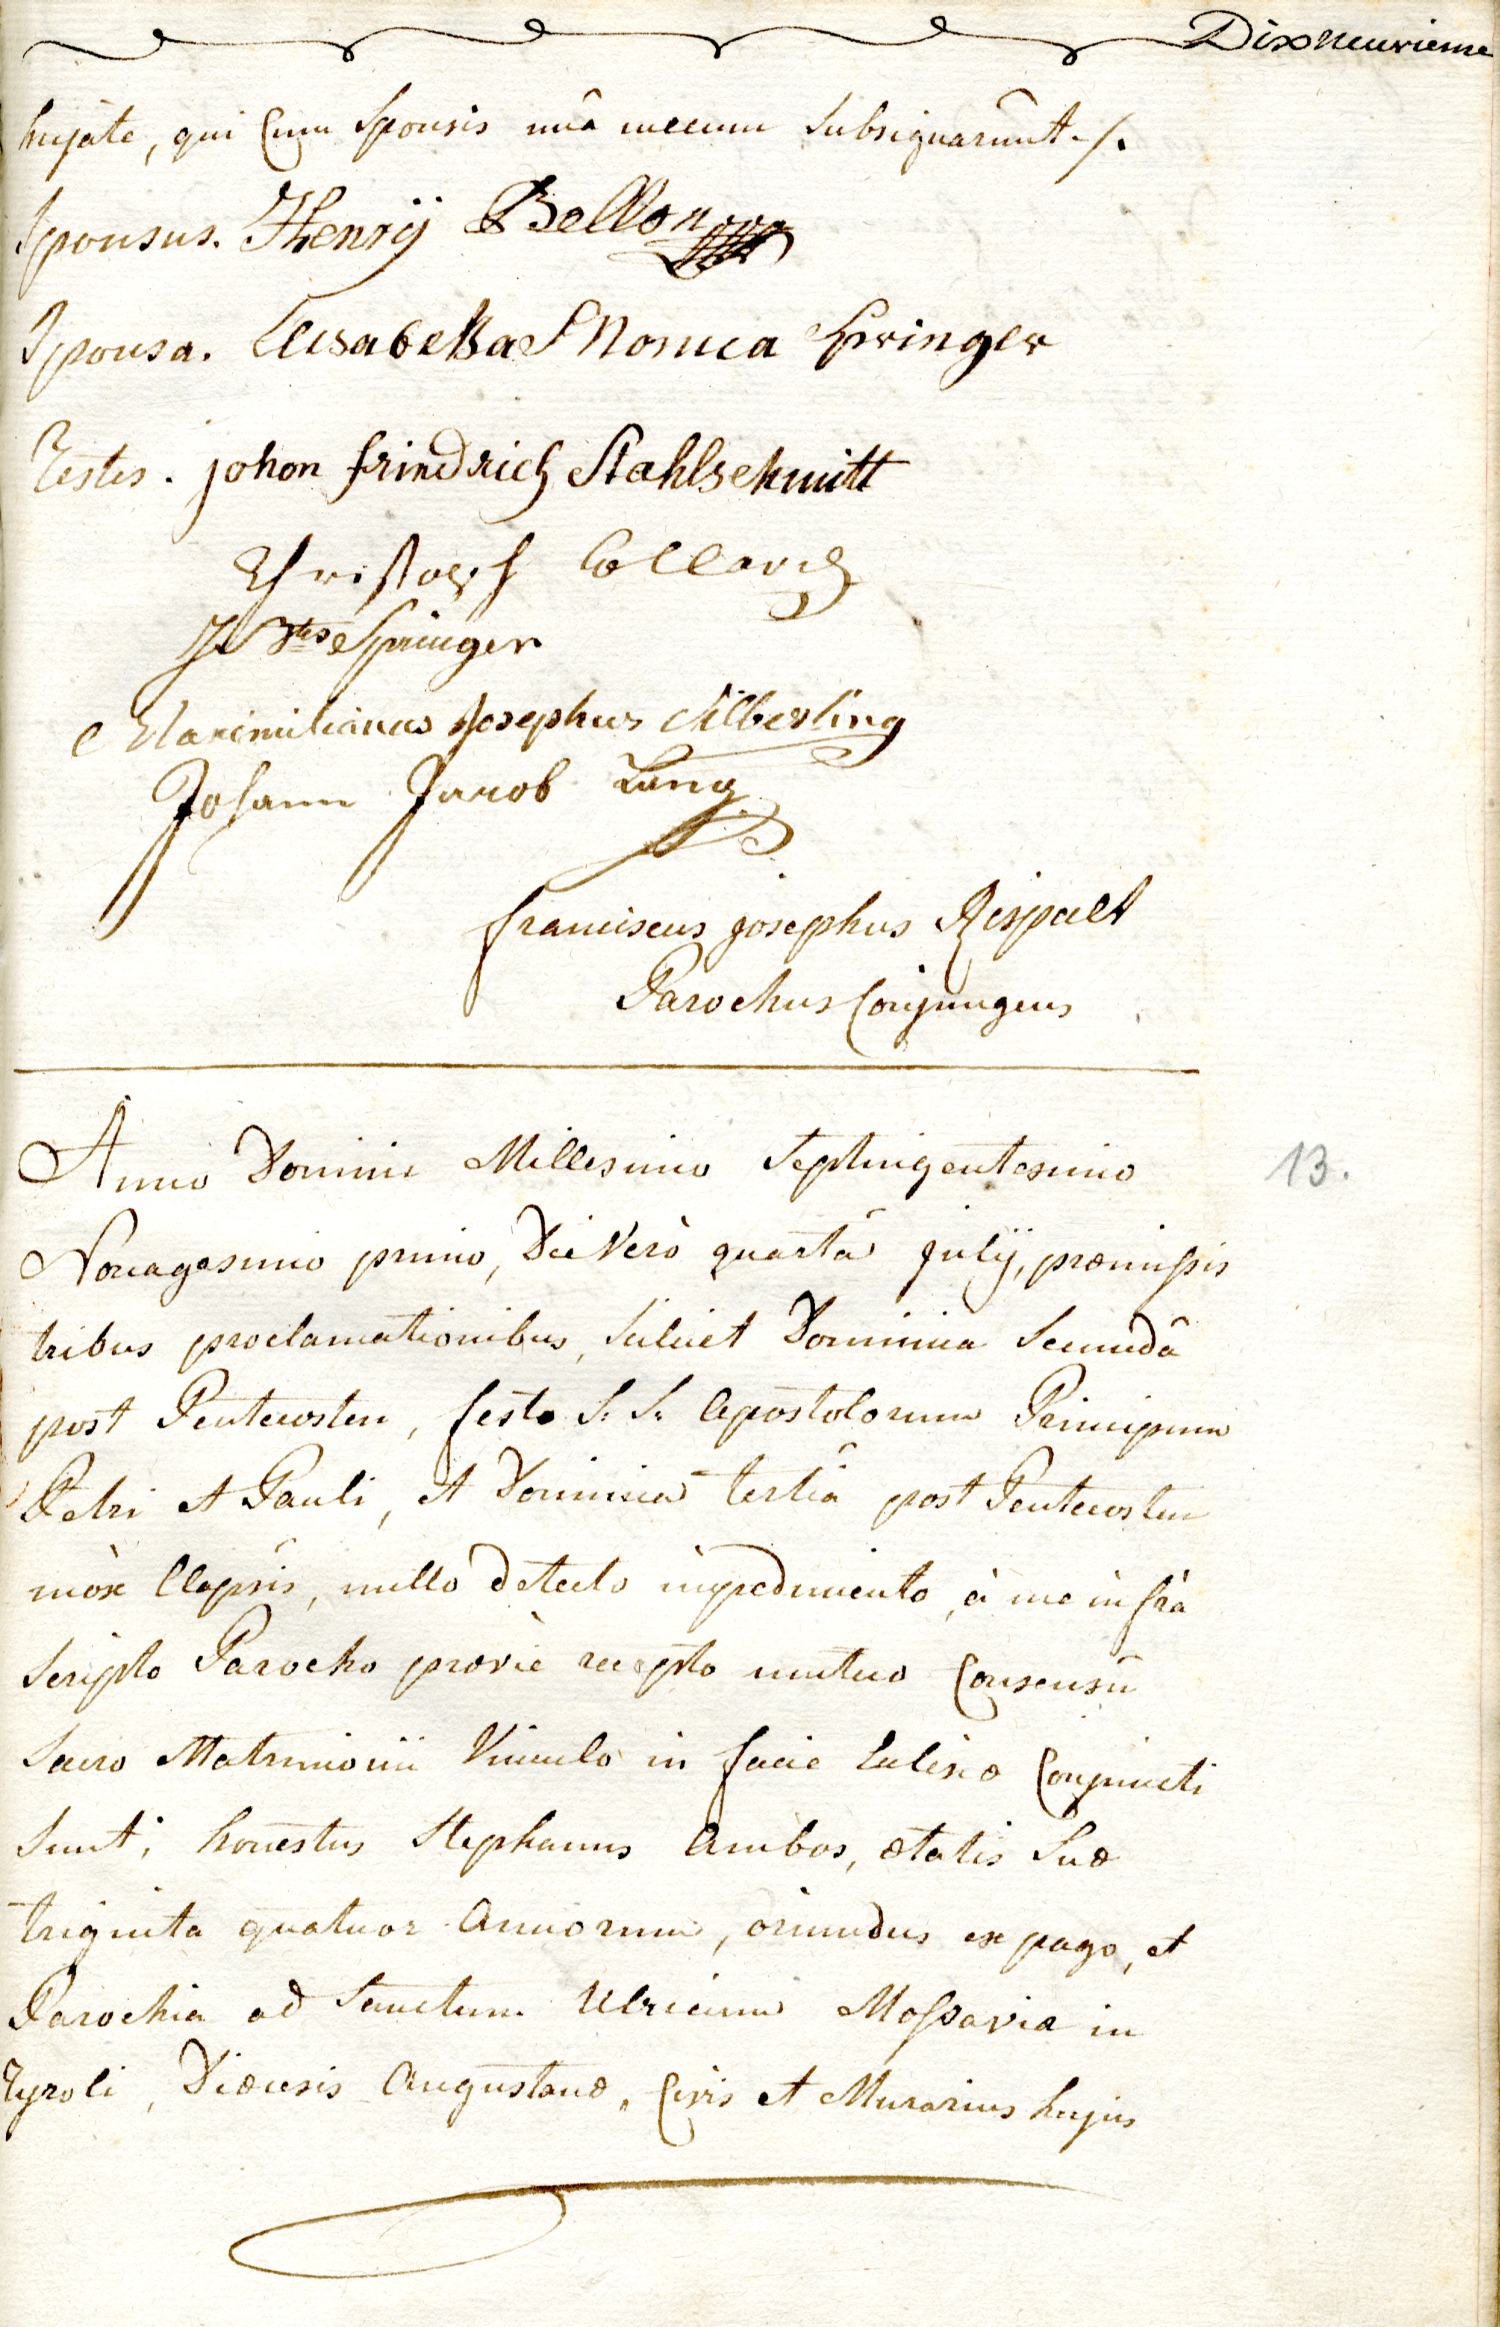 Dixneuvieme
hujate, qui Cum Sponsis unâ mecum Subsignarûnt ./.
Sponsus. Henrÿ Bellon
Sponsa. Elisabetha Monica Springer
Testes. johon frindrich Stahlschmitt
Christoph Collard
J Btes Springer
Maximilianus Josephus Silberling
Johann Jacob Lang
franciscus josephus Rispalt
Parochus Conjungens
Anno Domini Millesimo Septingentesimo
13.
Nonagesimo primo, Die Verò quartâ julÿ, præmissis
tribus proclamationibus, Scilicet Dominica Secundâ
post Pentecosten, festo S. S. Apostolorum Principum
Petri et Pauli, et Dominica tertiâ post Pentecosten
mòx Elapsis, nullo detecto impedimento, à me infrà
Scripto Parocho prævie recepto mutuo Consensû
Sacro Matrimonii Vinculo in facie Eclesiæ Conjuncti
Sunt, honestus Stephanus Ambos, ætatis Suæ
triginta quatuor Annorum, oriundus ex pago, et
Parochia ad Sanctum Ulricum Mossavia in
Tyroli, Diæcesis Augustanæ, Civis et Murarius hujus